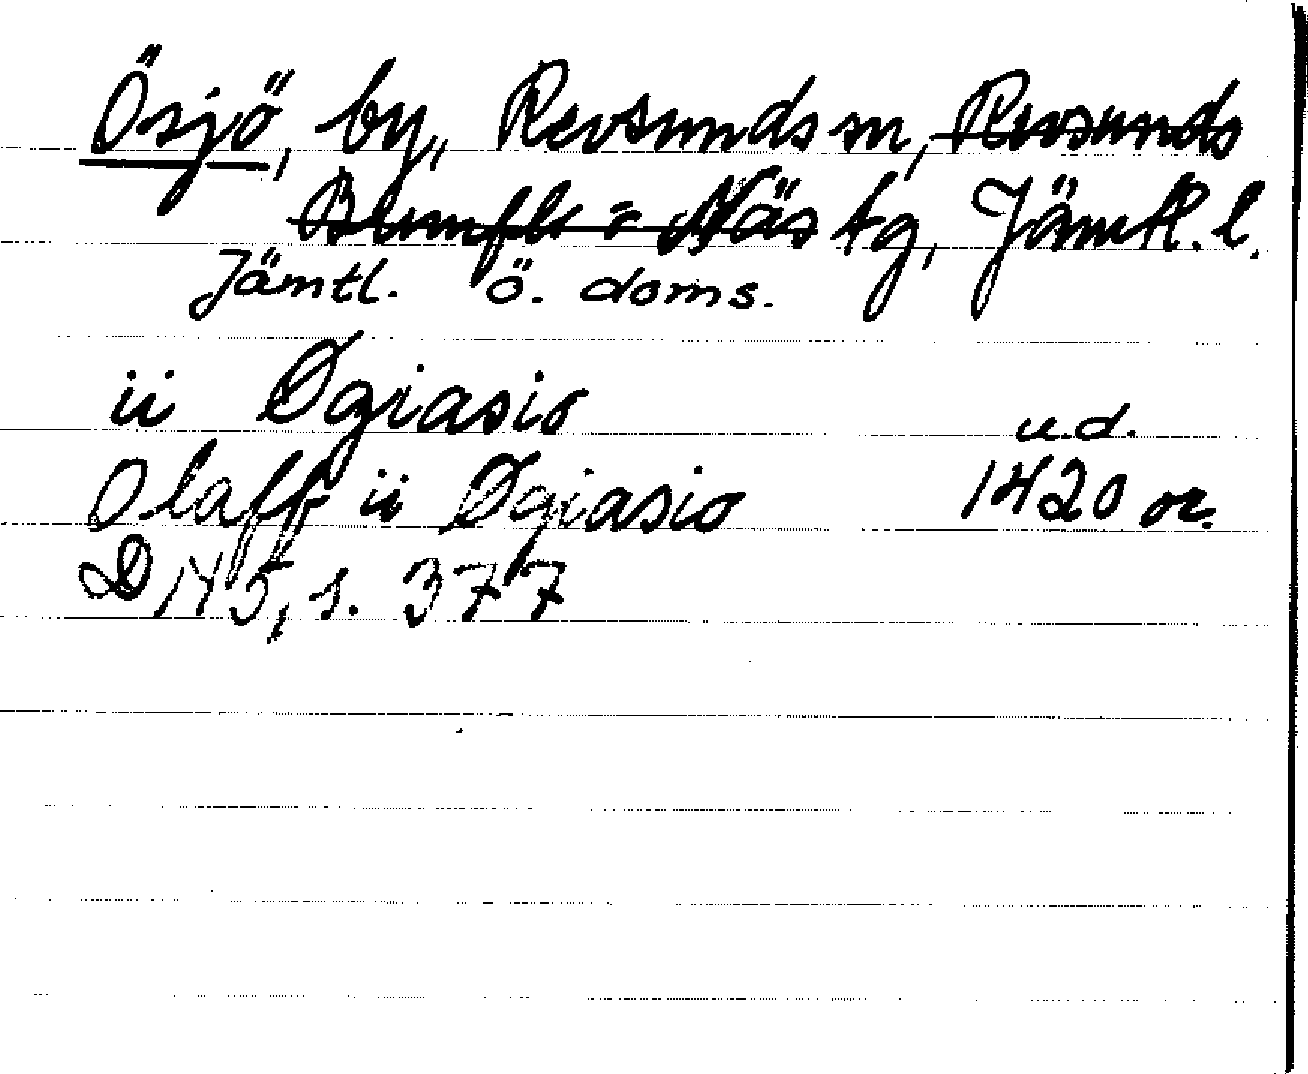 Ösjö, by, Revsunds sn, Revsunds
Brunflo o Näs tg, Jämtl. l.
Jämtl. ö. doms.
ii Øgiasio
u.d.
Olaff ii Øgiasio 1420 or.
DN 5, s. 377